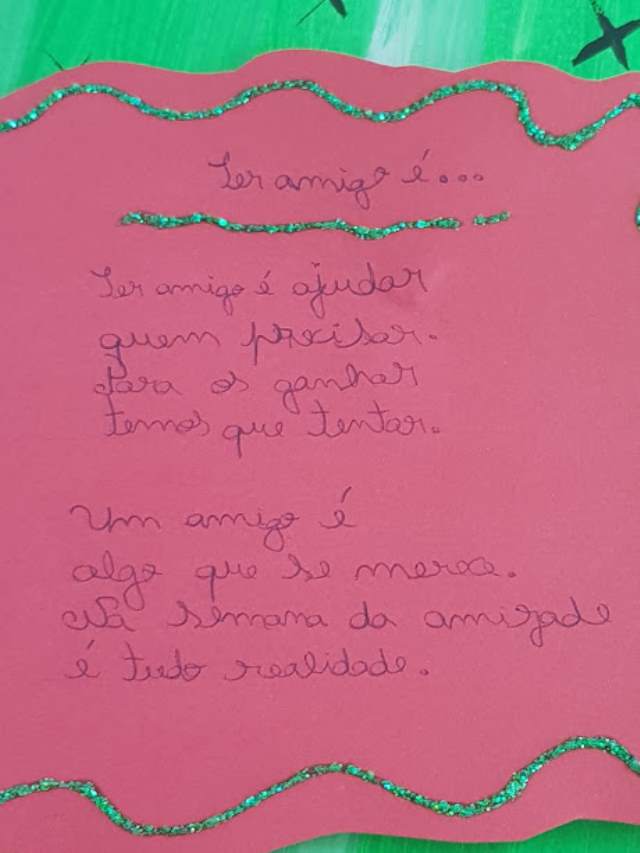 Ser amigo é...
Ser amigo é ajudar
quem precisar.
Para os ganhar
temos que tentar.
Um amigo é
algo que se merece.
Na semana da amizade
é tudo realidade.